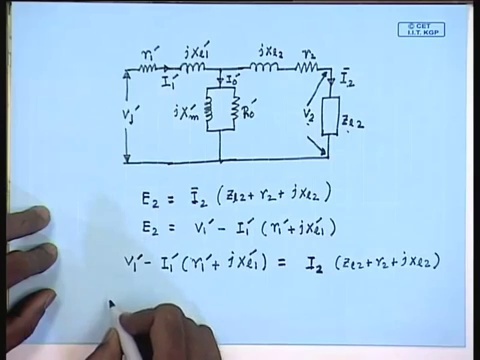 © CET
I.I.T. KGP
r₁′ jXl₁′ jXl₂ r₂
I₁′ I₀′ Ī₂
V₁′ jXm′ R₀′ V₂ Zl₂
E₂ = Ī₂ (Zl₂ + r₂ + jXl₂)
E₂ = V₁′ - I₁′ (r₁′ + jXl₁′)
V₁′ - I₁′ (r₁′ + jXl₁′) = I₂ (Zl₂ + r₂ + jXl₂)